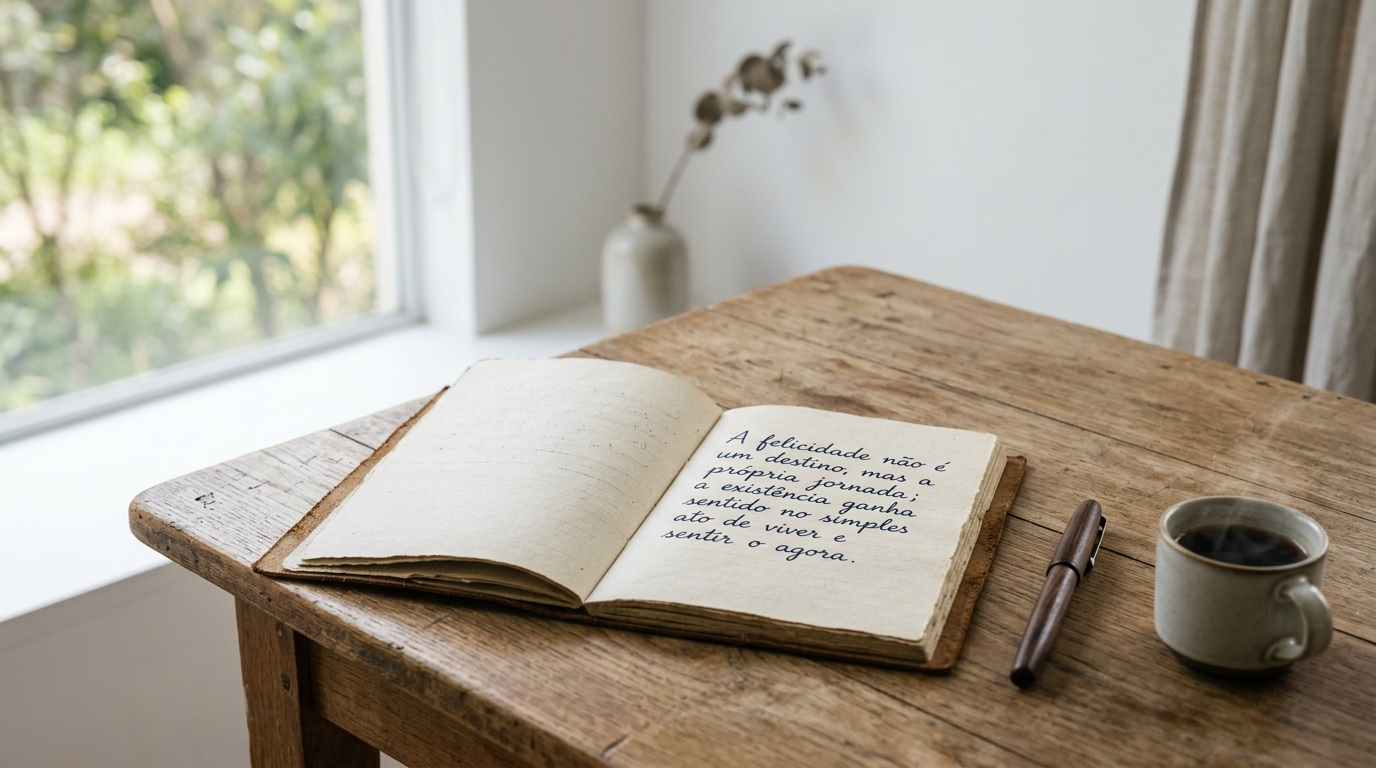 A felicidade não é
um destino, mas a
própria jornada;
a existência ganha
sentido no simples
ato de viver e
sentir o agora.